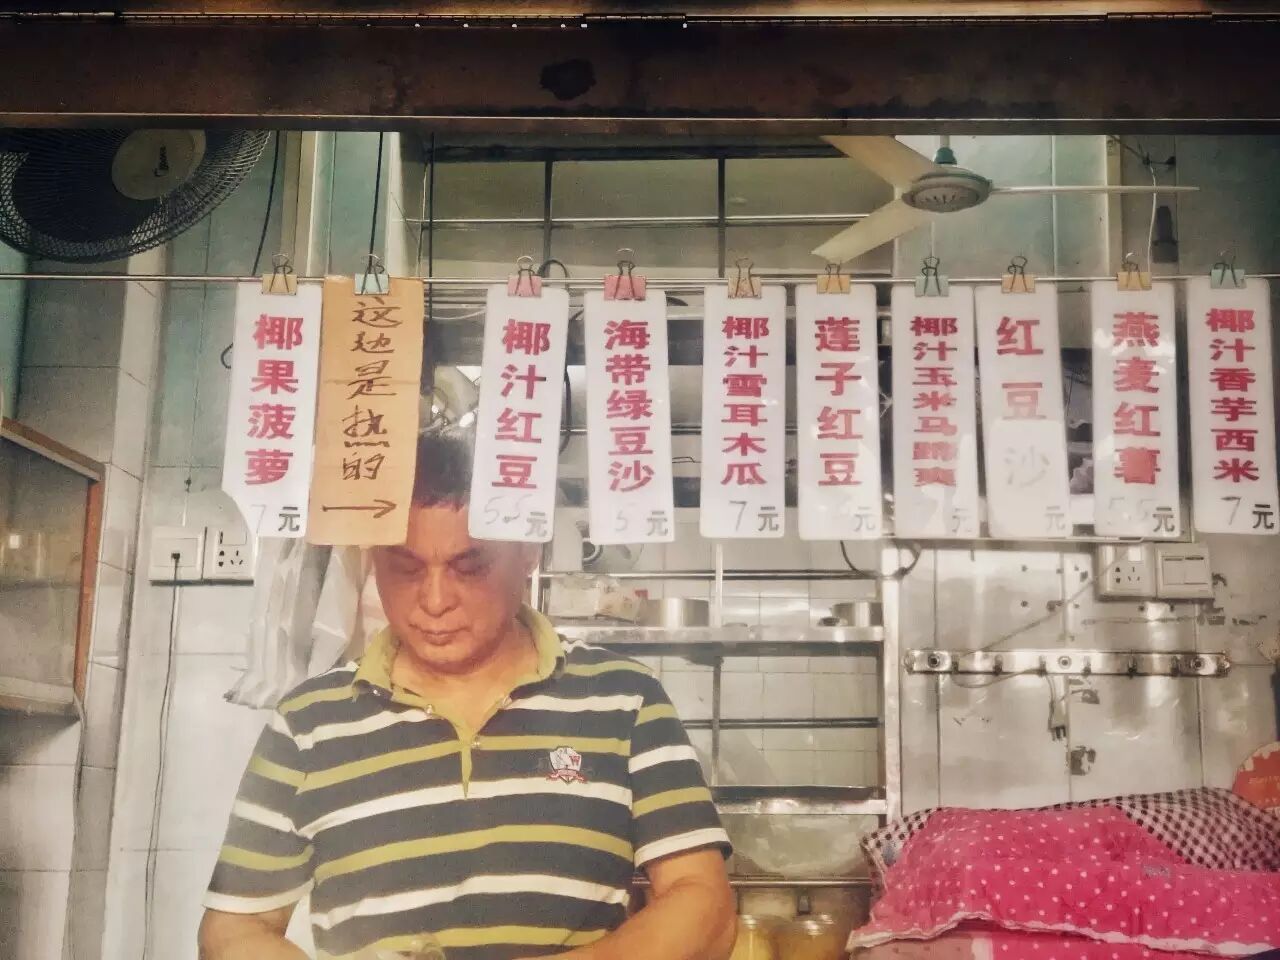 椰果菠萝
7元
这边是热的
→
椰汁红豆
5.5元
海带绿豆沙
5元
椰汁雪耳木瓜
7元
莲子红豆
元
椰汁玉米马蹄爽
元
红豆沙
元
燕麦红薯
5.5元
椰汁香芋西米
7元